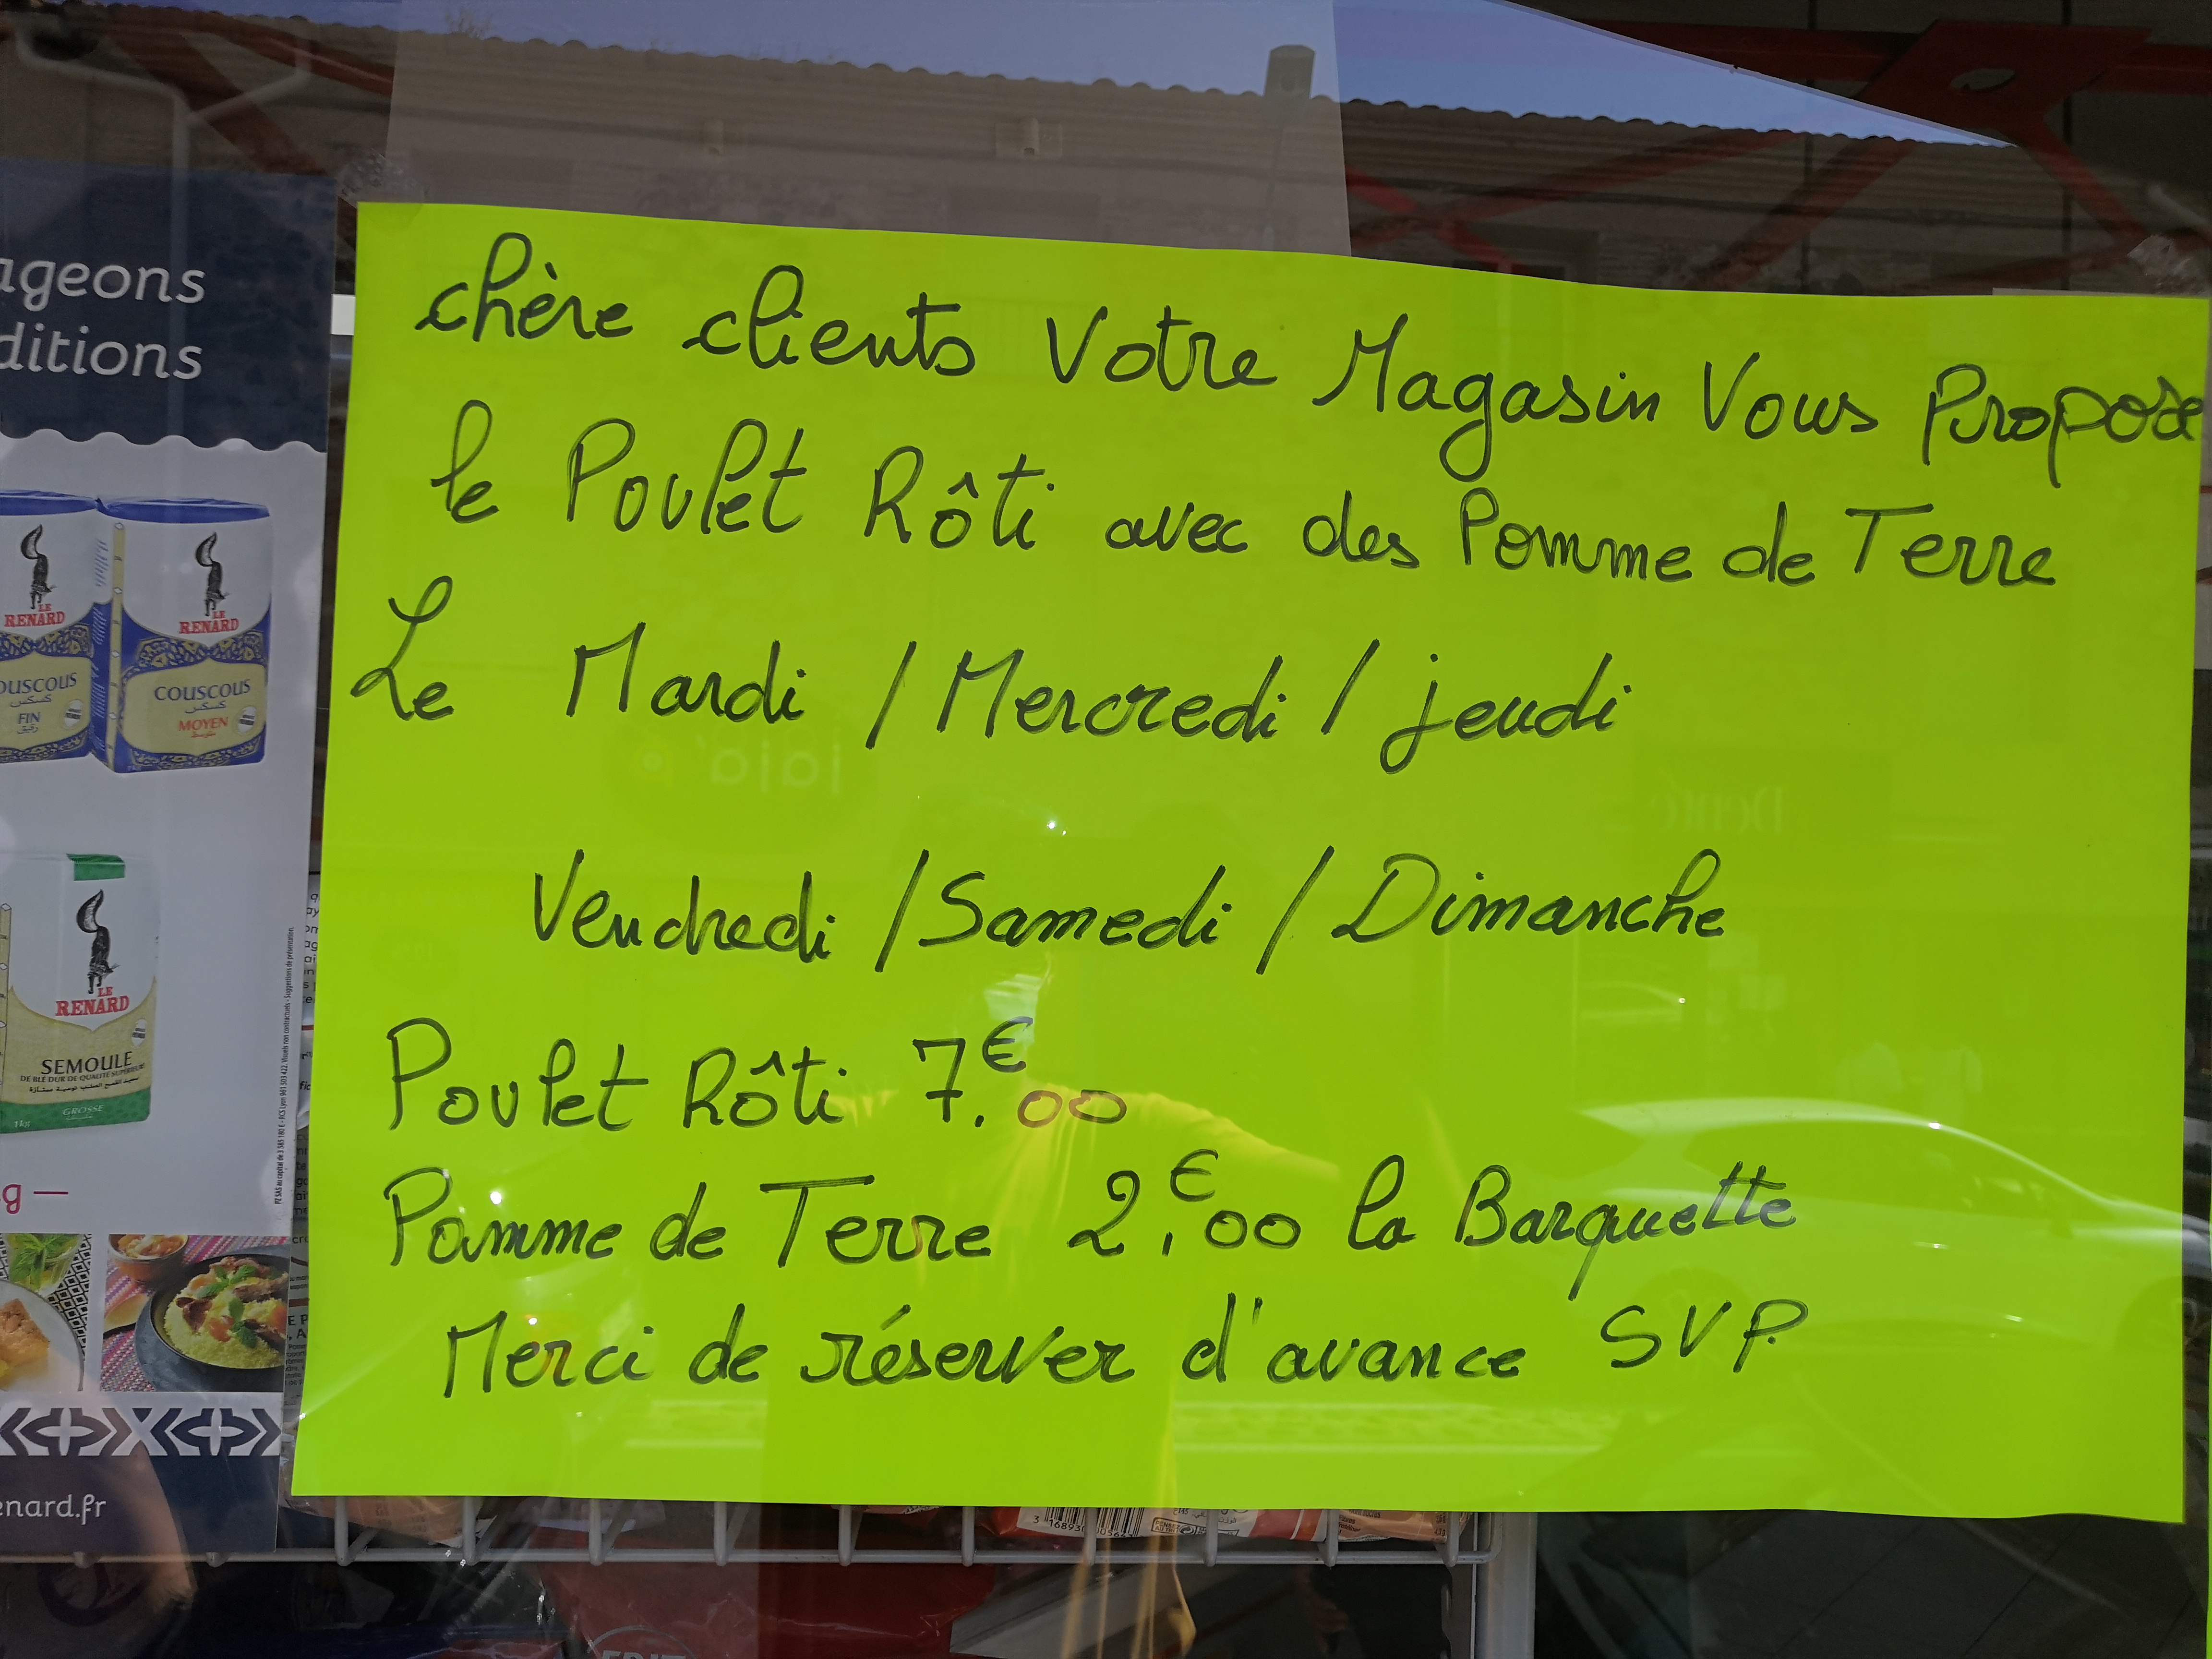 ageons
ditions
chère clients Votre Magasin Vous Propose
le Poulet Rôti avec des Pomme de Terre
Le Mardi / Mercredi / jeudi
Vendredi / Samedi / Dimanche
Poulet Rôti 7€.00
Pomme de Terre 2€.00 la Barquette
Merci de réserver d'avance SVP.
LE
RENARD
OUSCOUS
كسكس
FIN
رقيق
LE
RENARD
COUSCOUS
كسكس
MOYEN
متوسط
LE
RENARD
SEMOULE
DE BLÉ DUR DE QUALITÉ SUPÉRIEURE
GROSSE
1kg
g —
enard.fr